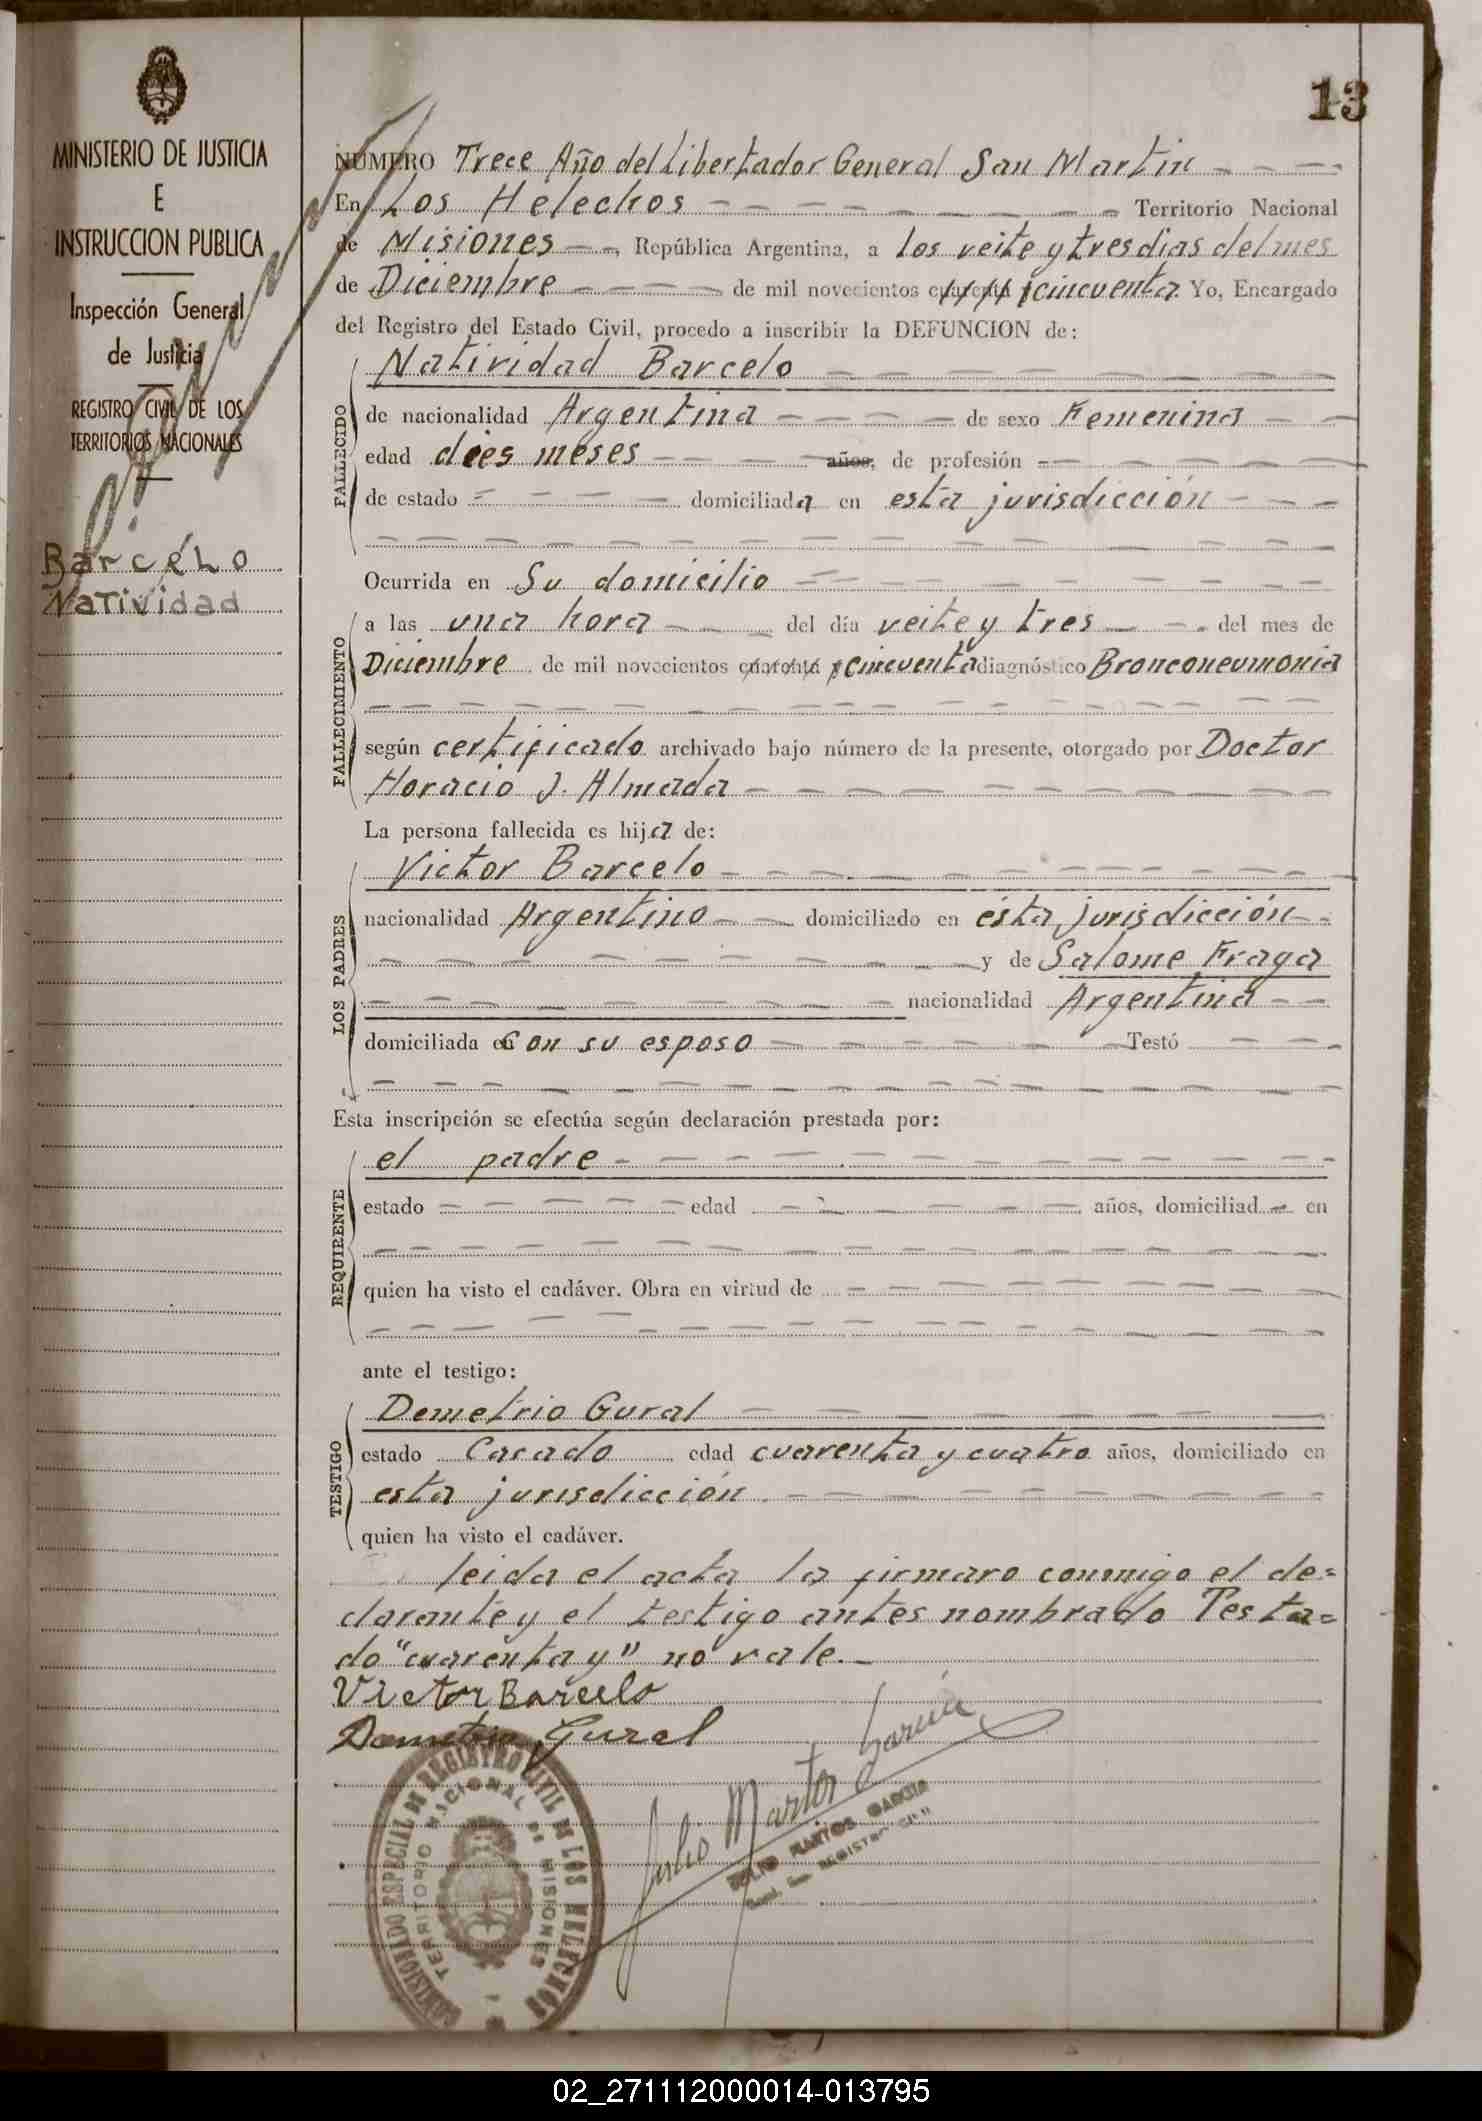 13
MINISTERIO DE JUSTICIA
E
INSTRUCCION PUBLICA
Inspección General
de Justicia
REGISTRO CIVIL DE LOS
TERRITORIOS NACIONALES
Barcelo
Natividad
NUMERO Trece Año del Libertador General San Martin
En Los Helechos Territorio Nacional
de Misiones, República Argentina, a los veite y tres dias del mes
de Diciembre de mil novecientos cuarenta y cincuenta. Yo, Encargado
del Registro del Estado Civil, procedo a inscribir la DEFUNCION de:
FALLECIDO
Natividad Barcelo
de nacionalidad Argentina de sexo Femenina
edad dies meses años, de profesión
de estado domiciliada en esta jurisdicción
FALLECIMIENTO
Ocurrida en Su domicilio
a las una hora del día veite y tres del mes de
Diciembre de mil novecientos cuarenta y cincuenta diagnóstico Bronconeumonia
según certificado archivado bajo número de la presente, otorgado por Doctor
Horacio J. Almada
La persona fallecida es hija de:
LOS PADRES
Victor Barcelo
nacionalidad Argentino domiciliado en ésta jurisdicción
y de Salome Fraga
nacionalidad Argentina
domiciliada con su esposo Testó
Esta inscripción se efectúa según declaración prestada por:
REQUIRENTE
el padre
estado edad años, domiciliad en
quien ha visto el cadáver. Obra en virtud de
ante el testigo:
TESTIGO
Demetrio Gural
estado Casado edad cuarenta y cuatro años, domiciliado en
esta jurisdicción
quien ha visto el cadáver.
leida el acta la firmaro conmigo el de=
clarante y el testigo antes nombrado Testa=
do "cuarenta y" no vale.—
Victor Barcelo
Demetrio Gural
Julio Martos Garcia
JULIO MARTOS GARCIA
COMISIONADO ESPECIAL DE REGISTRO CIVIL DE LOS HELECHOS
TERRITORIO NACIONAL DE MISIONES
02_271112000014-013795